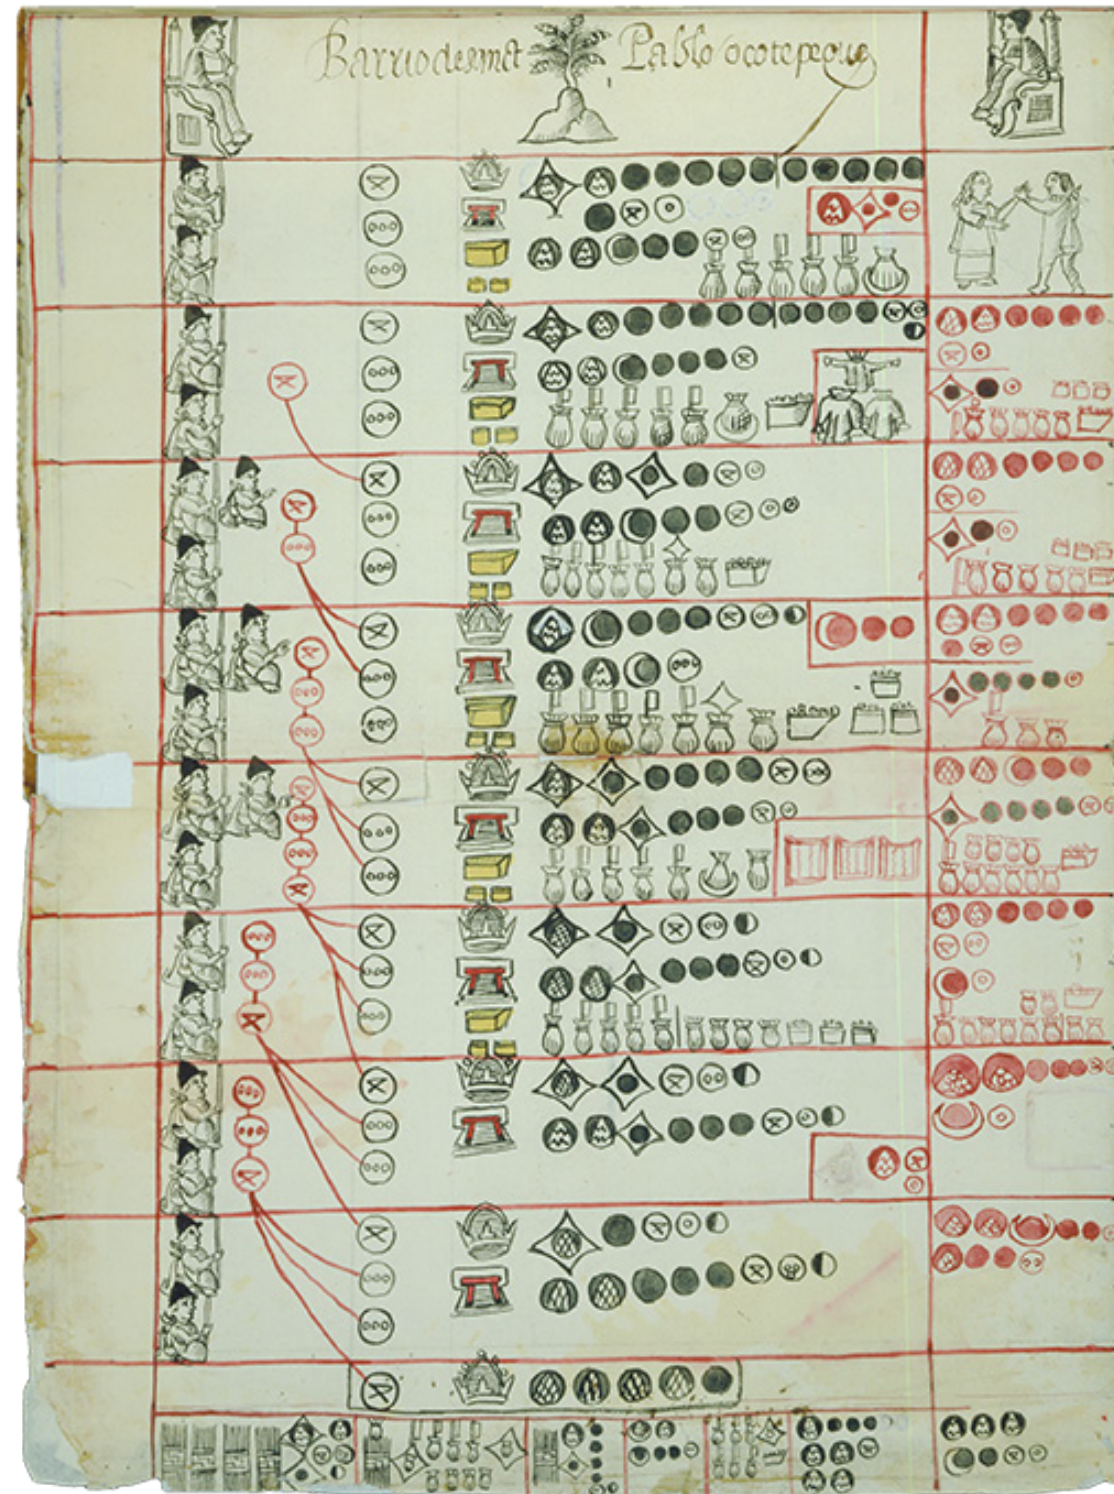 Barrio de sanct Pablo ocotepeque